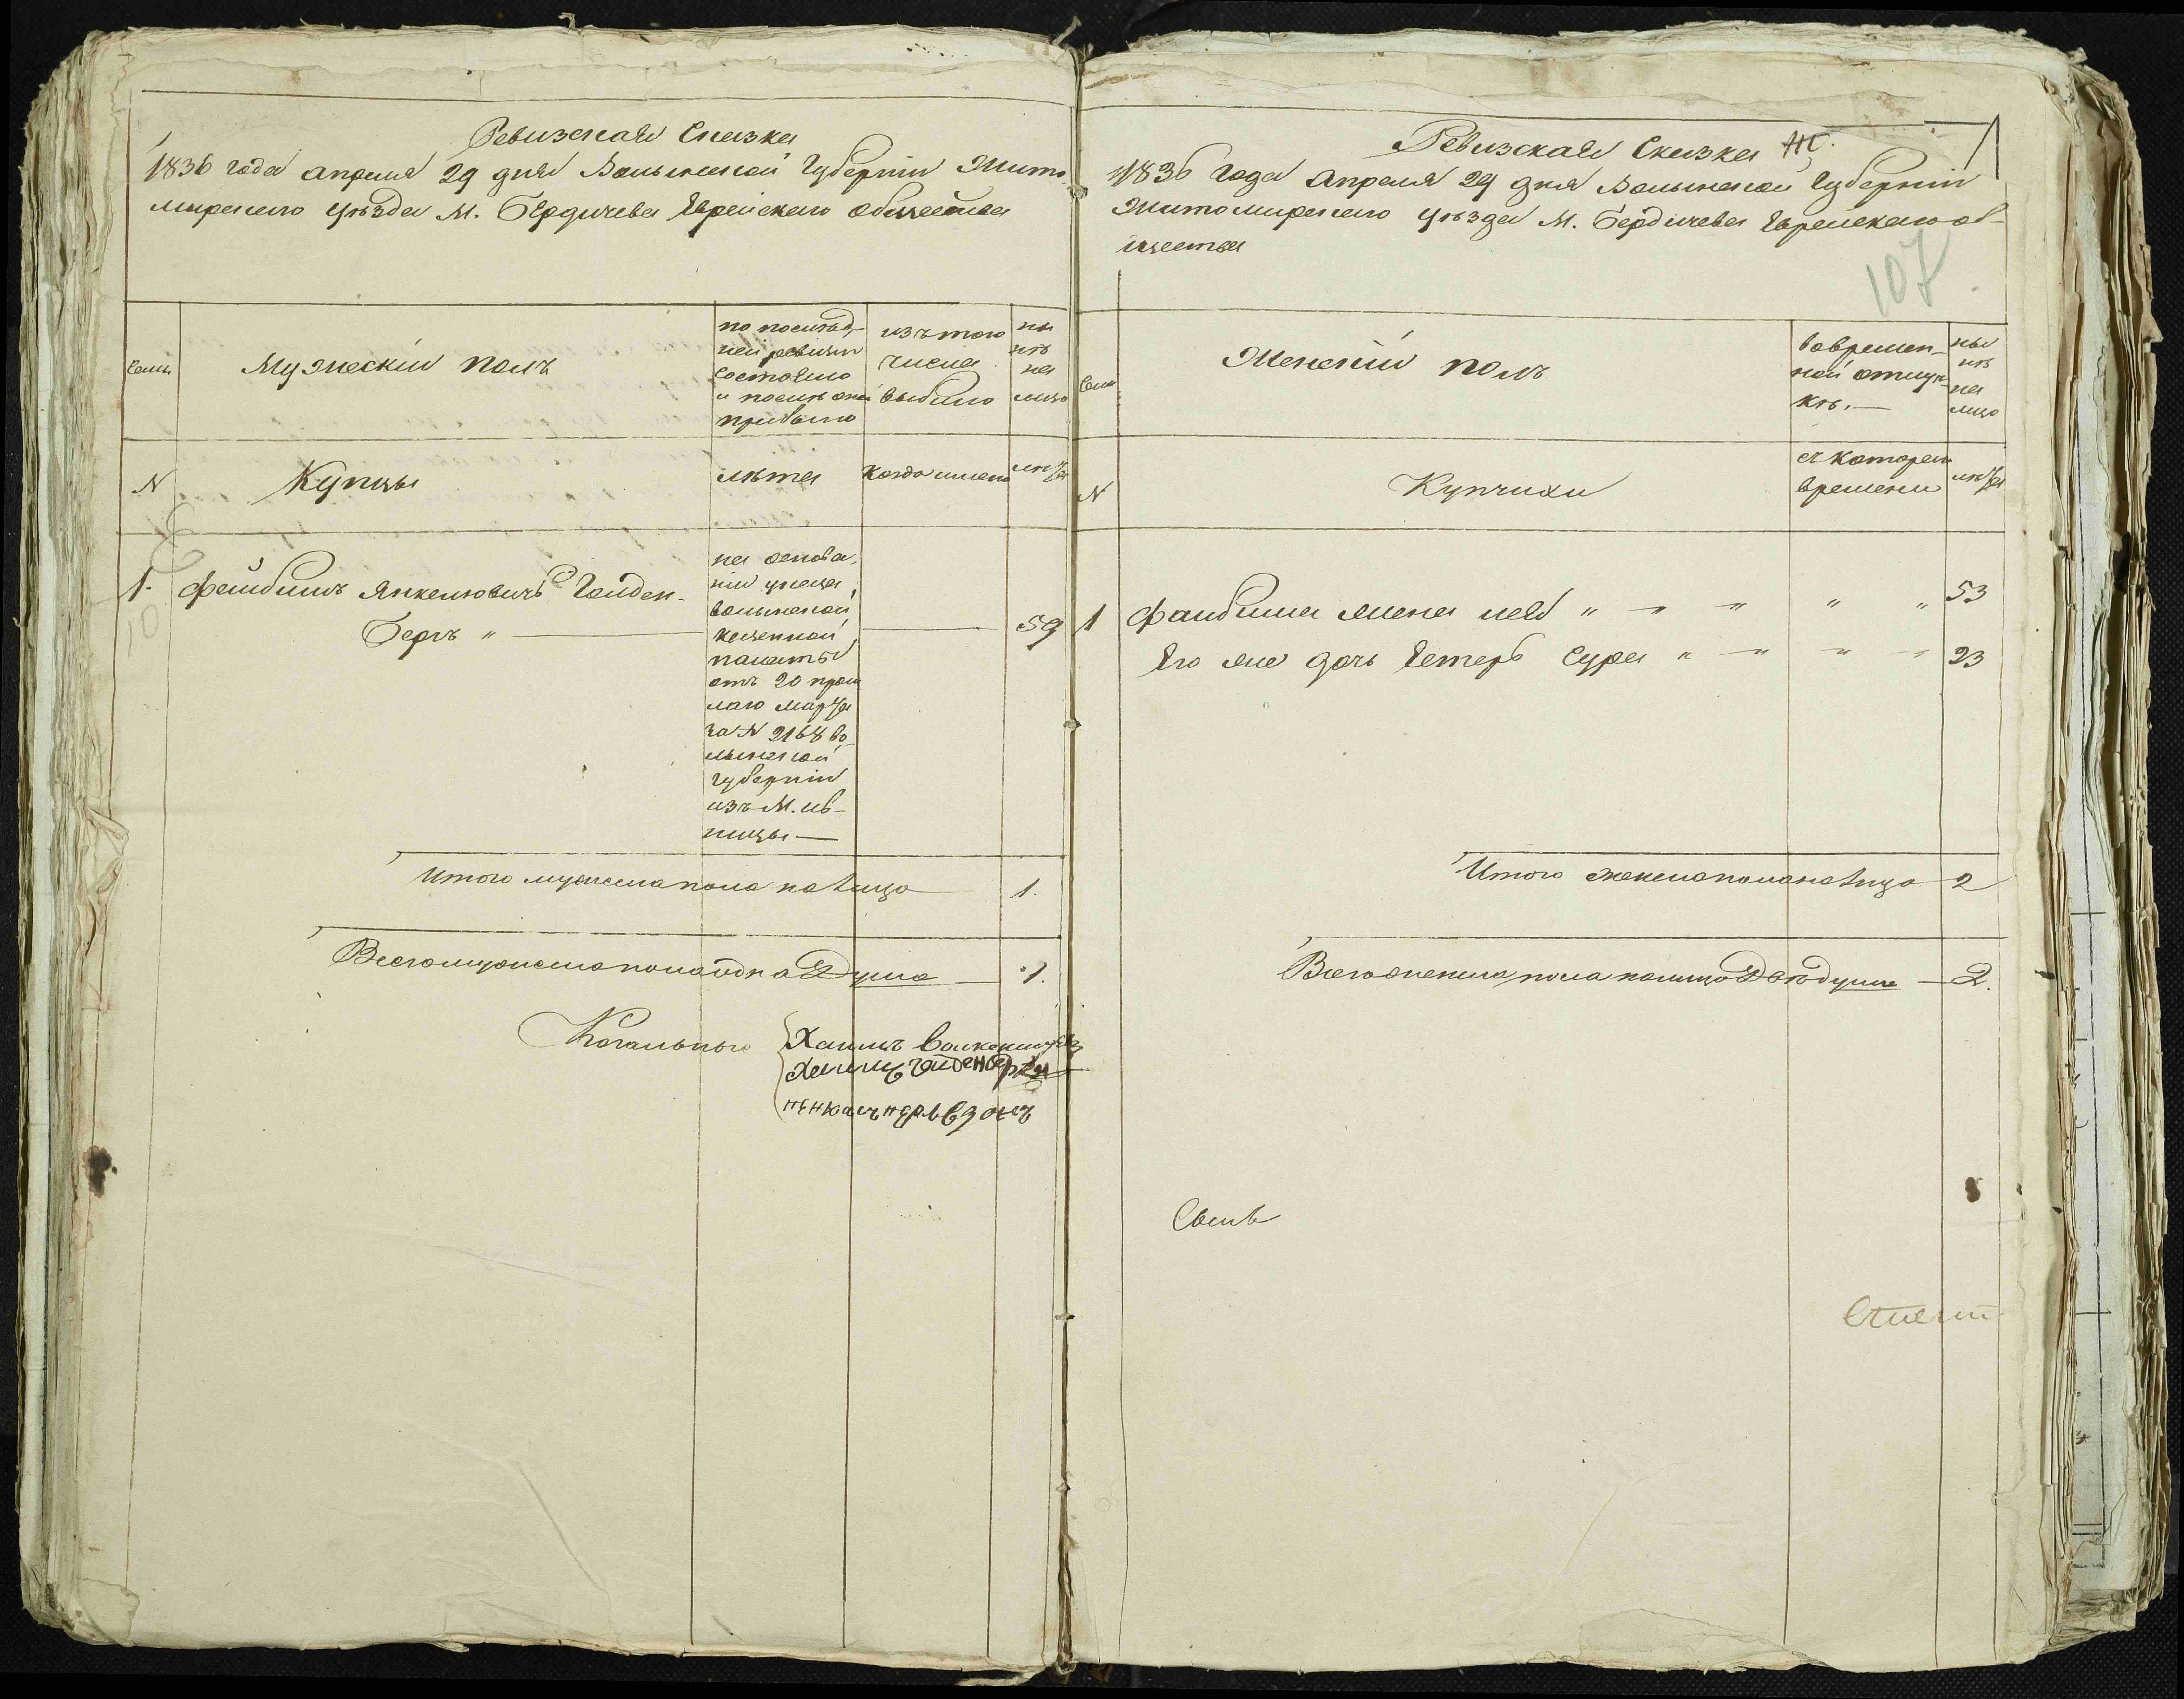 Ревизская Сказка
1836 года апреля 29 дня Волынской Губерніи Жито-
мирскаго уѣзда М. Бердичева Еврейскаго общества
Семьи
Мужескій полъ
по послѣд-
ней ревизіи
состояло
и послѣ оной
прибыло
изъ того
числа
выбыло
ны
нѣ
на
лицо
N
Купцы
лѣта
когда именно
лѣта
1.
Файбишъ Янкелювичъ Голден-
бергъ "
на основа-
ніи указа
волынской
казенной
палаты
отъ 20 прош
лаго марта
за N 2168 во-
лынской
губерніи
изъ М. ив-
ницы —
59
Итого мужеска пола на лицо 1.
Всего мужеска пола одна Душа 1.
Кагальные
Хаимъ
Ревизская Сказка
107
1836 Года Апреля 29 дня Волынской Губерніи
Житомирскаго уѣзда М. Бердичева Еврейскаго об-
щества
Семьи
Женскій полъ
вовремен-
ной отлуч-
кѣ. —
ны
нѣ
на
лицо
N
Купчихи
съ котораго
времени
лѣта
1 Файбиша жена " " " " " 53
Его же дочь Естеръ Сура " " " " 23
Итого женска пола на лицо 2
Всего женска пола на лицо Двѣ души — 2.